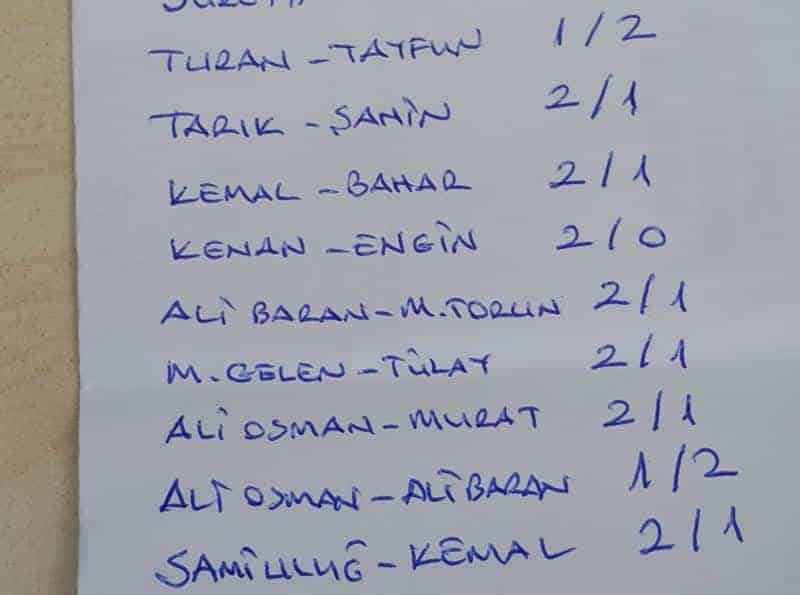 TURAN - TAYFUN 1/2
TARIK - ŞAHİN 2/1
KEMAL - BAHAR 2/1
KENAN - ENGİN 2/0
ALİ BARAN - M. TORUN 2/1
M. GELEN - TÜLAY 2/1
ALİ OSMAN - MURAT 2/1
ALİ OSMAN - ALİ BARAN 1/2
SAMİ ULUĞ - KEMAL 2/1